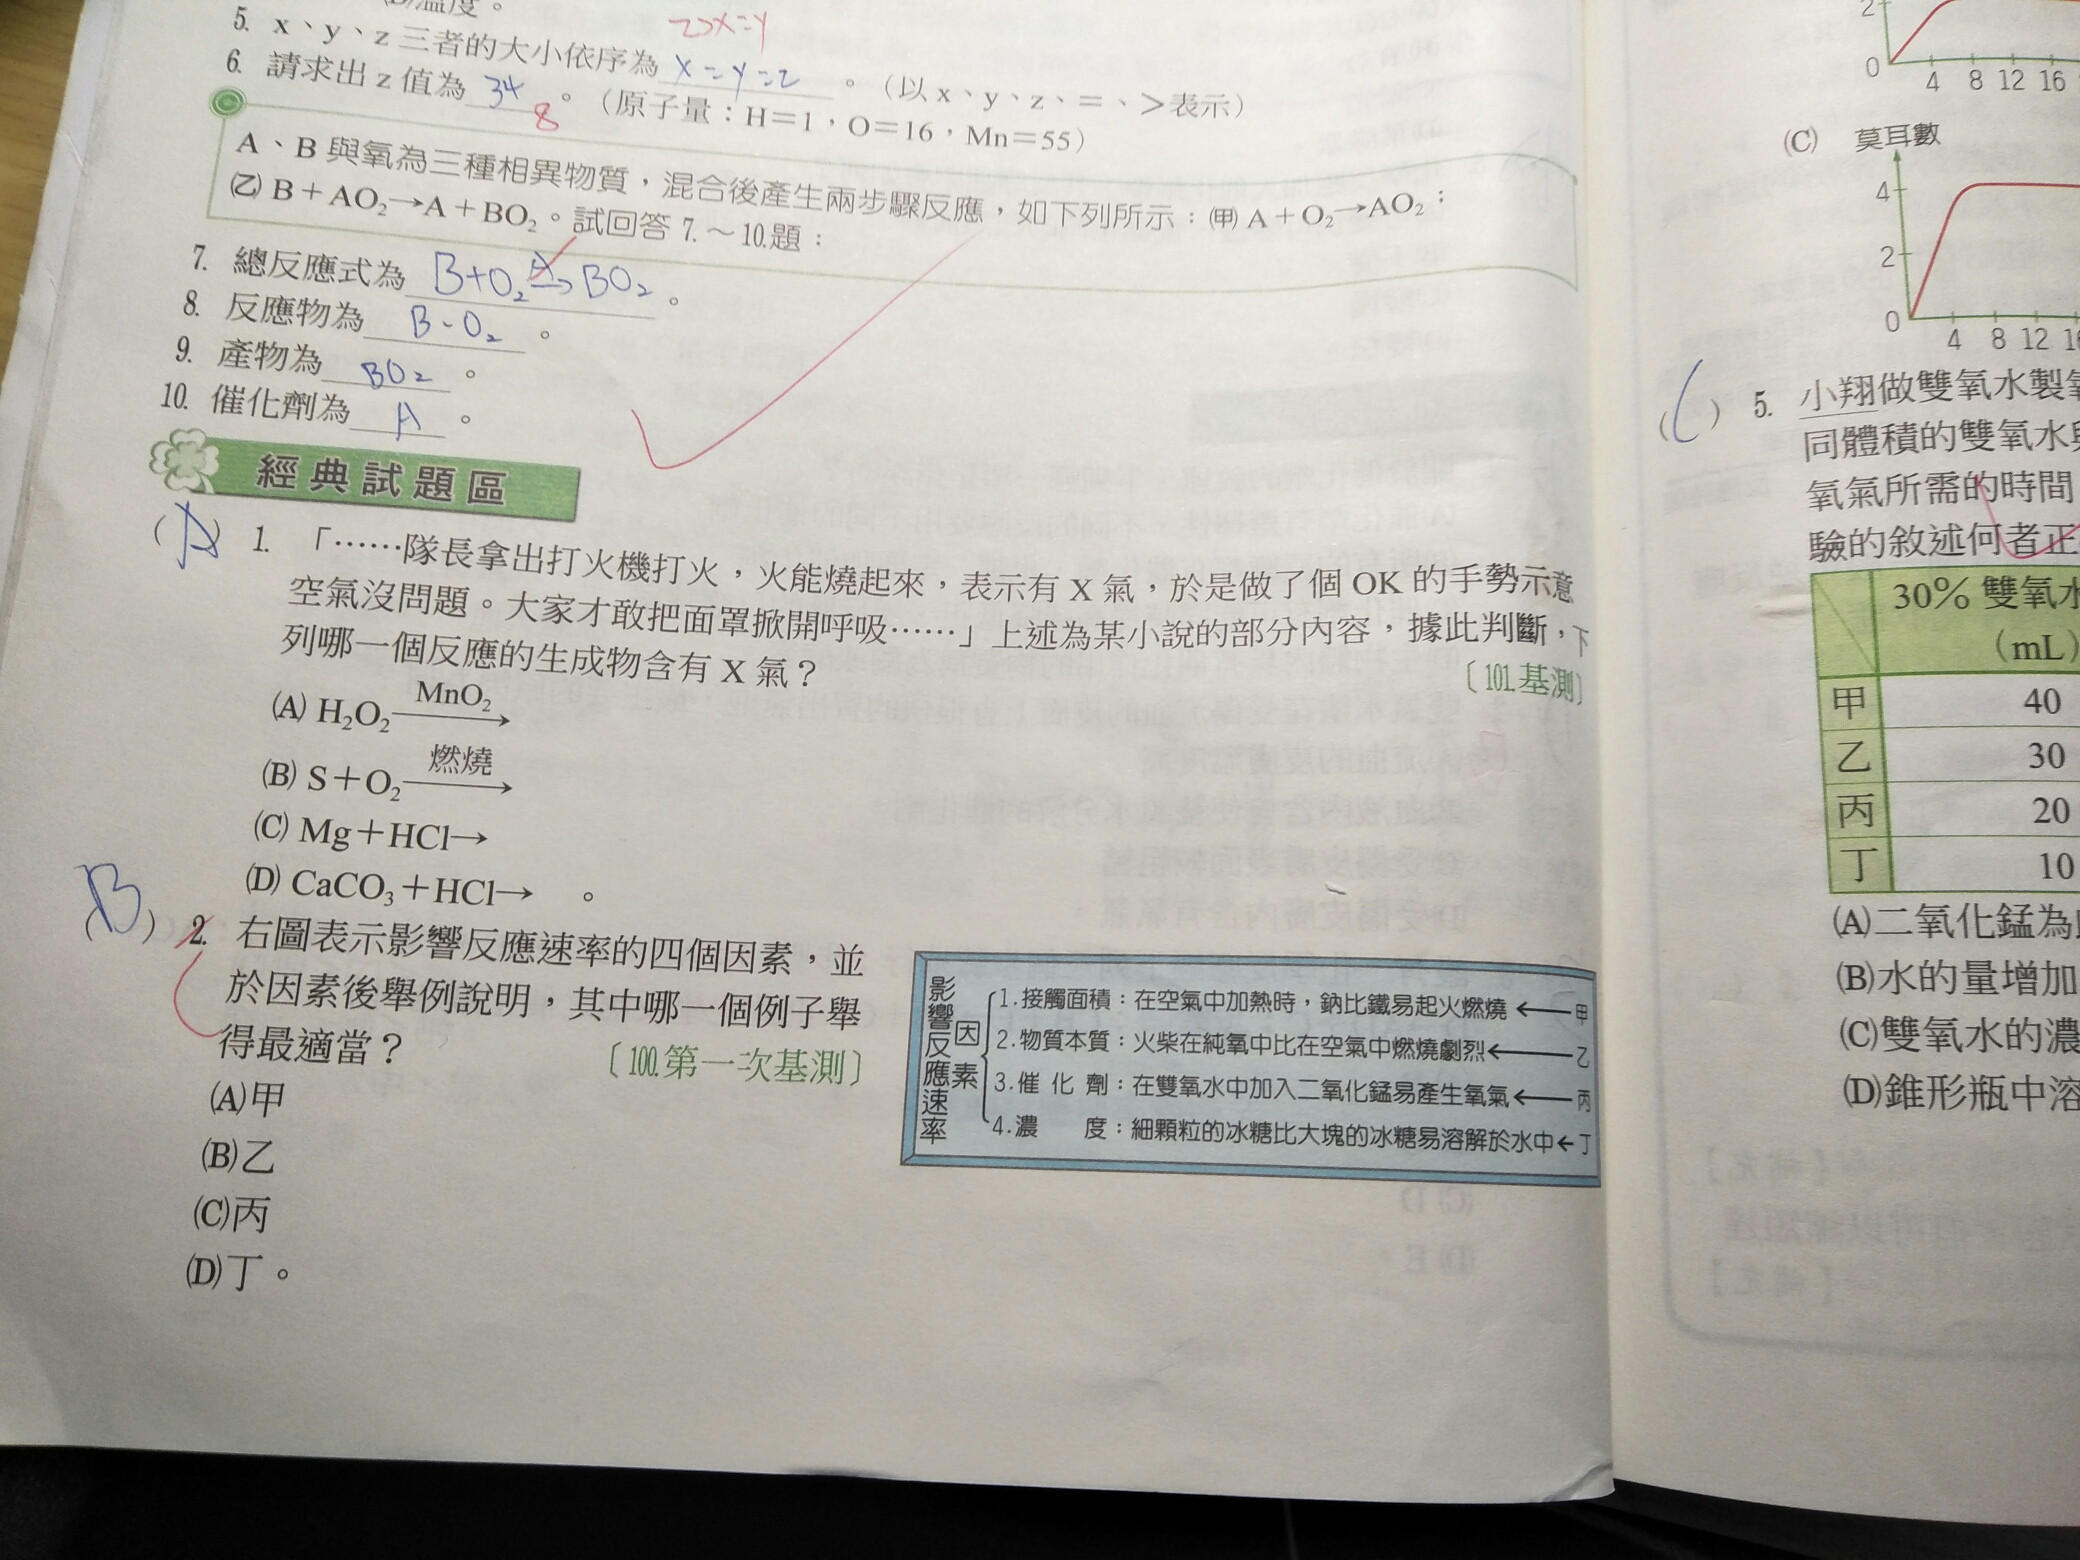 溫度。
z>x=y
5. x、y、z 三者的大小依序為 x=y=z 。(以 x、y、z、=、>表示)
6. 請求出 z 值為 34 。(原子量:H=1,O=16,Mn=55)
8
A、B 與氧為三種相異物質,混合後產生兩步驟反應,如下列所示:(甲) A+O₂→AO₂;
(乙) B+AO₂→A+BO₂。試回答 7.~10.題:
7. 總反應式為 B+O₂ A→ BO₂ 。
8. 反應物為 B、O₂ 。
9. 產物為 BO₂ 。
10. 催化劑為 A 。
經典試題區
(A) 1. 「……隊長拿出打火機打火,火能燒起來,表示有 X 氣,於是做了個 OK 的手勢示意
空氣沒問題。大家才敢把面罩掀開呼吸……」上述為某小說的部分內容,據此判斷,下
列哪一個反應的生成物含有 X 氣?
〔101.基測〕
(A) H₂O₂ MnO₂→
(B) S+O₂ 燃燒→
(C) Mg+HCl→
(D) CaCO₃+HCl→ 。
(B) 2. 右圖表示影響反應速率的四個因素,並
於因素後舉例說明,其中哪一個例子舉
得最適當?
〔100.第一次基測〕
(A)甲
(B)乙
(C)丙
(D)丁。
影響反應速率
因素
1.接觸面積:在空氣中加熱時,鈉比鐵易起火燃燒←甲
2.物質本質:火柴在純氧中比在空氣中燃燒劇烈←乙
3.催化劑:在雙氧水中加入二氧化錳易產生氧氣←丙
4.濃度:細顆粒的冰糖比大塊的冰糖易溶解於水中←丁
2
0
4 8 12 16
(C) 莫耳數
4
2
0
4 8 12
(C) 5. 小翔做雙氧水製
同體積的雙氧水
氧氣所需的時間
驗的敘述何者正
30% 雙氧水
(mL)
甲 40
乙 30
丙 20
丁 10
(A)二氧化錳為
(B)水的量增加
(C)雙氧水的濃
(D)錐形瓶中溶